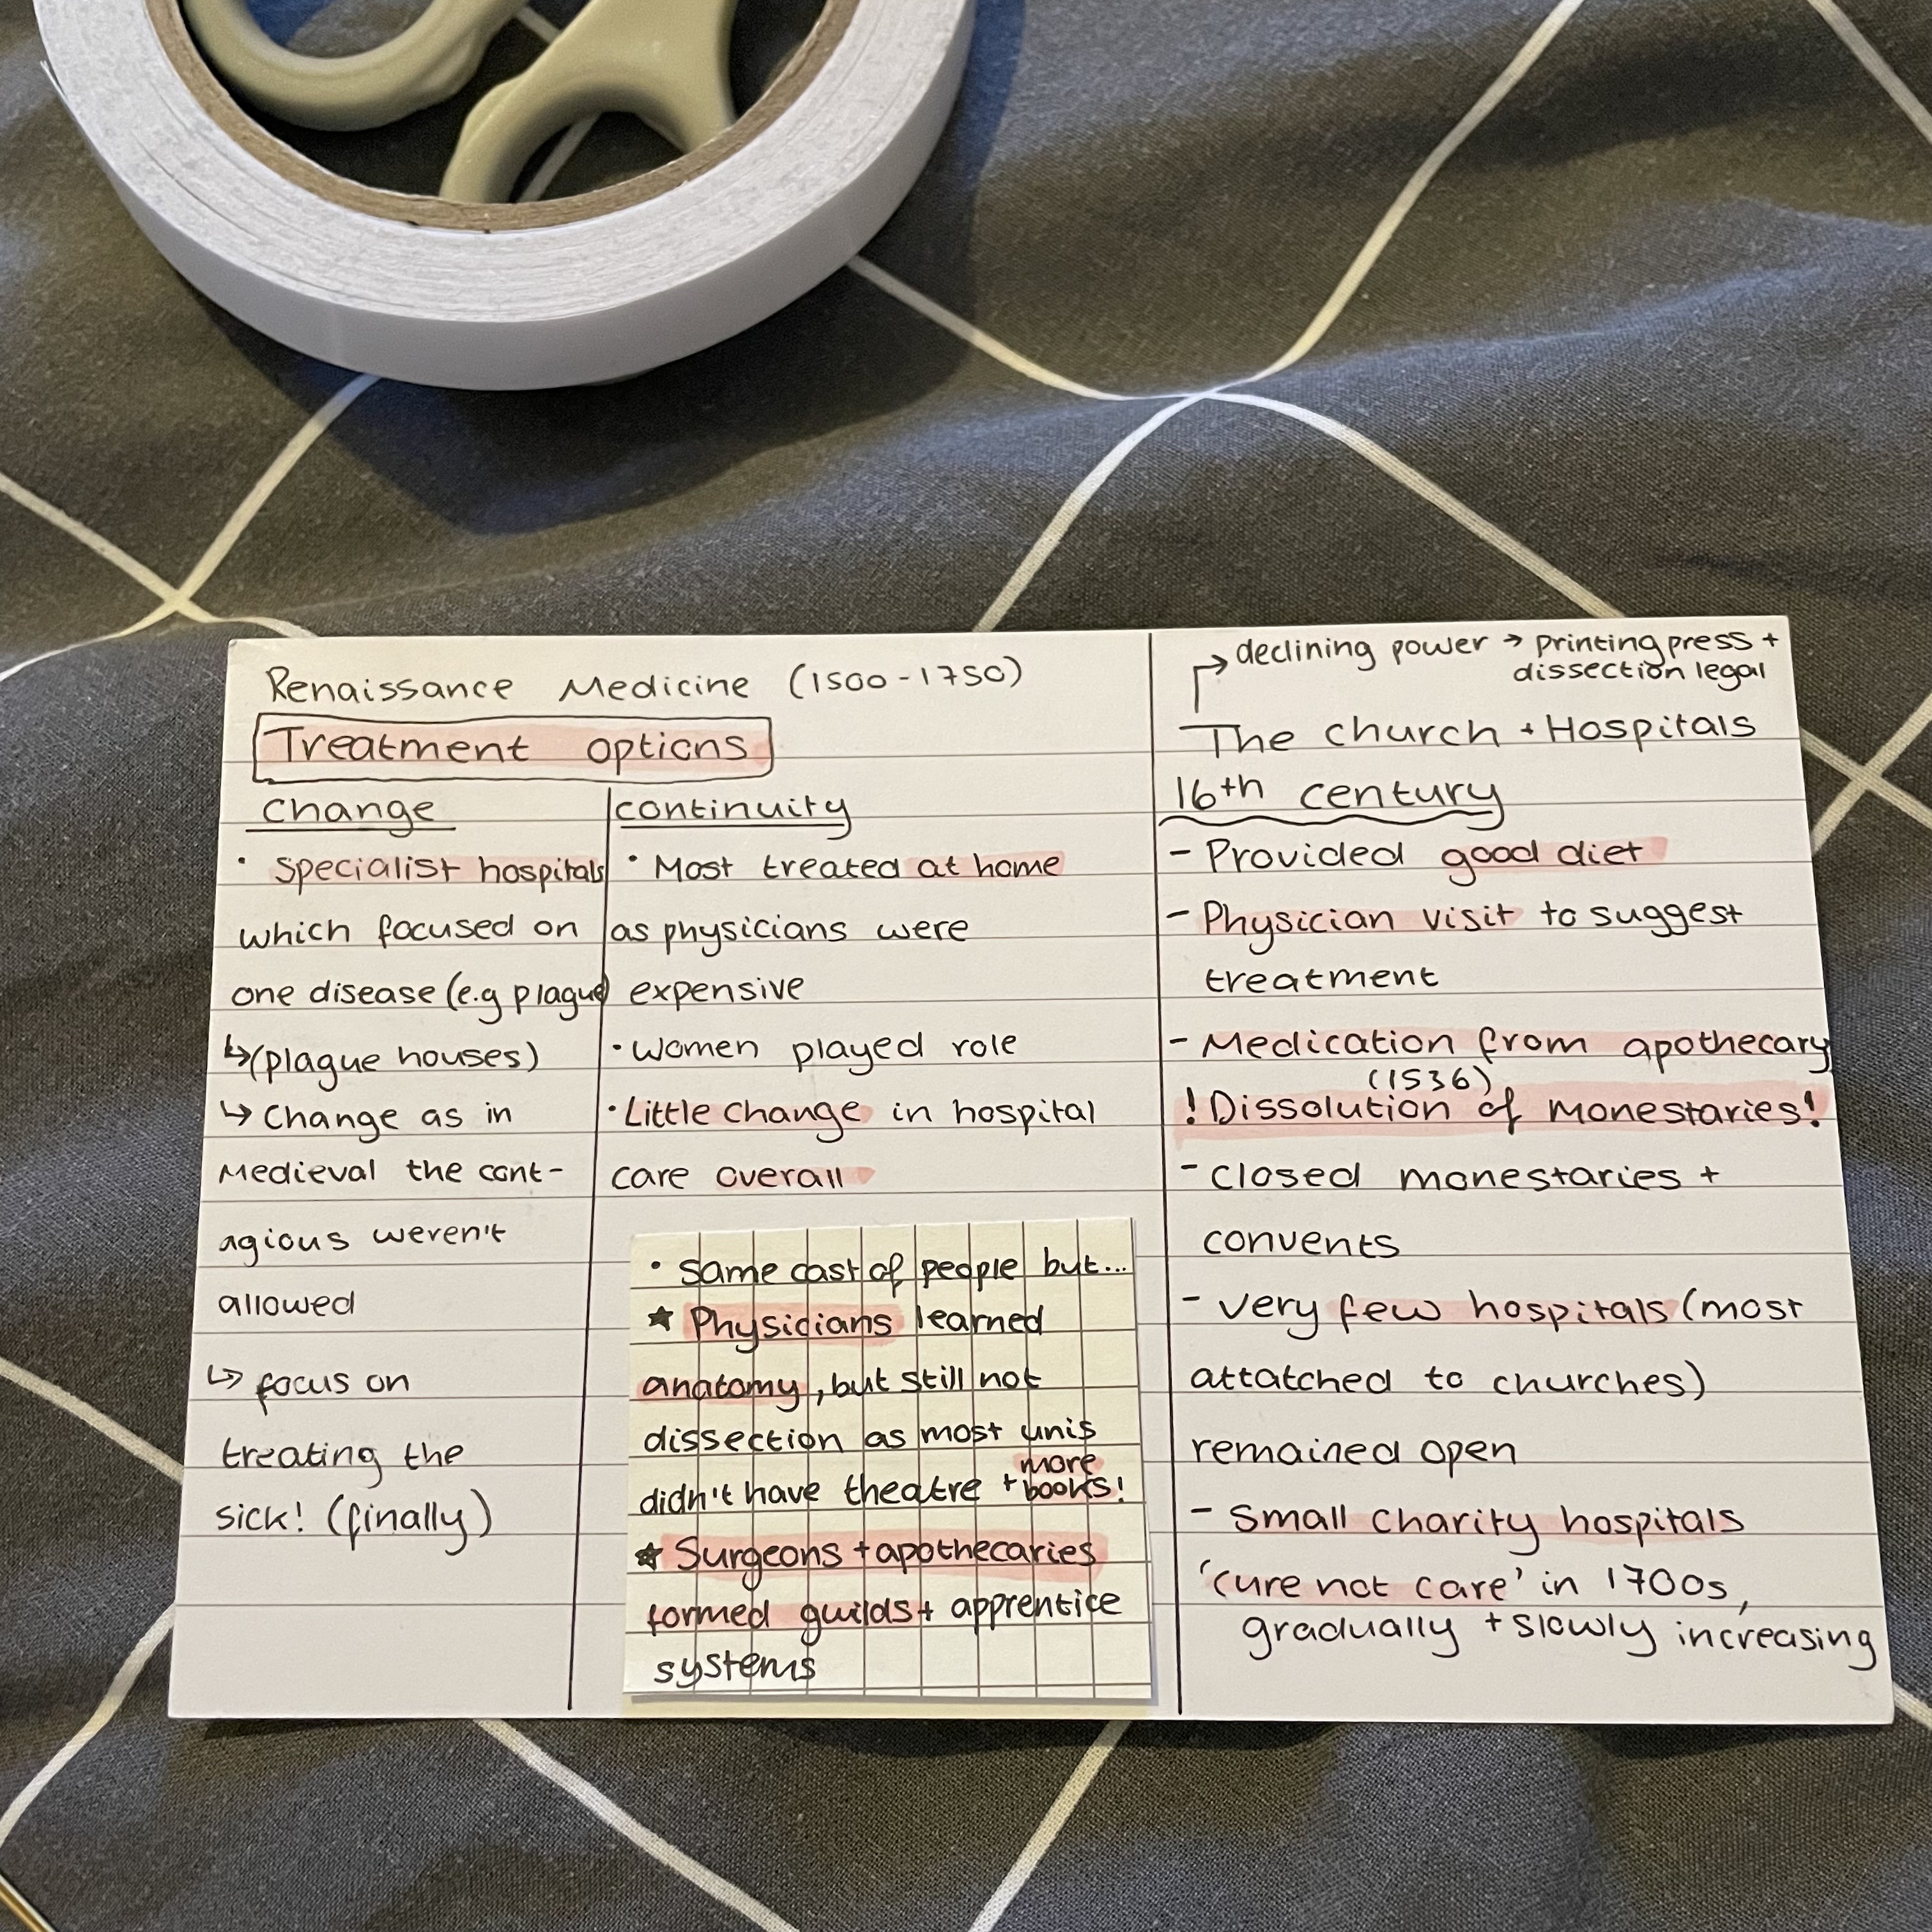 Renaissance Medicine (1500-1750)
Treatment options
change
• Specialist hospitals
which focused on
one disease (e.g plague)
↳ (plague houses)
↳ Change as in
Medieval the cont-
agious weren't
allowed
↳ focus on
treating the
sick! (finally)
continuity
• Most treated at home
as physicians were
expensive
• Women played role
• Little change in hospital
care overall
• same cast of people but...
★ Physicians learned
anatomy, but still not
dissection as most unis
more
didn't have theatre + books!
★ Surgeons + apothecaries
formed guilds + apprentice
systems
→ declining power → printing press +
dissection legal
The church + Hospitals
16th century
- Provided good diet
- Physician visit to suggest
treatment
- Medication from apothecary
(1536)
! Dissolution of monestaries!
- closed monestaries +
convents
- very few hospitals (most
attatched to churches)
remained open
- Small charity hospitals
'cure not care' in 1700s,
gradually + slowly increasing